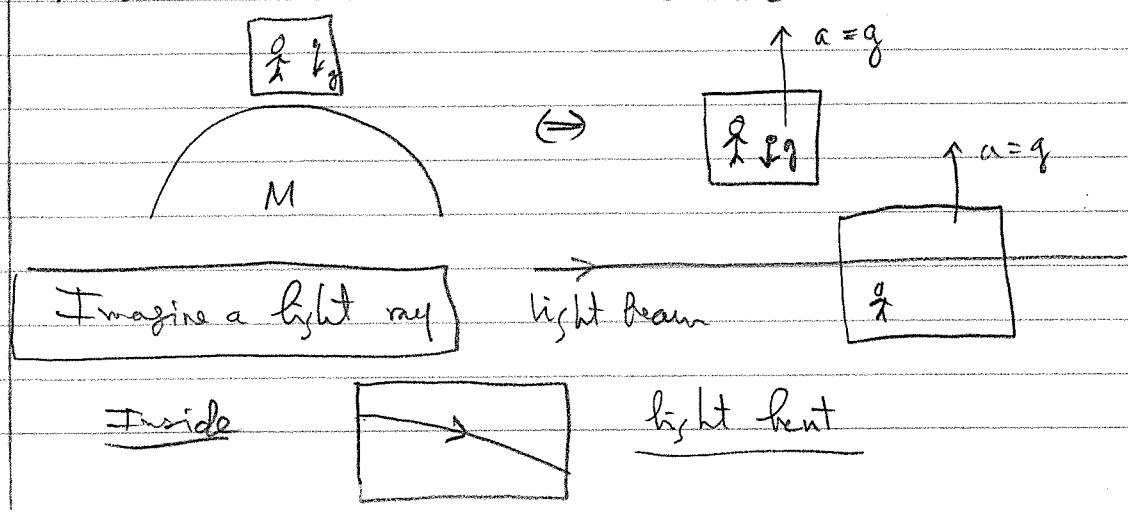 g
M
⇔
g
a = g
a = g
Imagine a light ray
light beam
Inside
light bent